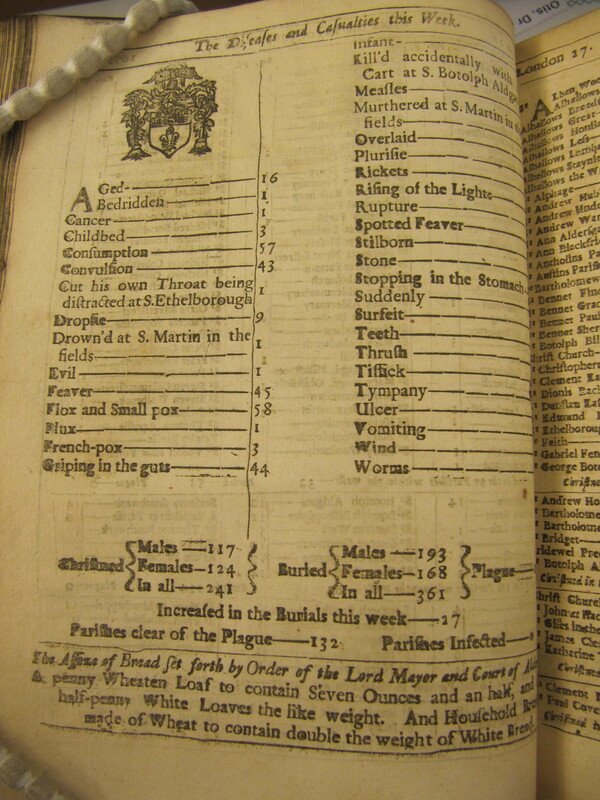 The Diſeaſes and Caſualties this Week.
AGed 16
Bedridden 1
Cancer 1
Childbed 3
Conſumption 57
Convulſion 43
Cut his own Throat being
diſtracted at S. Ethelborough 1
Dropſie 9
Drown'd at S. Martin in the
fields 1
Evil 1
Feaver 45
Flox and Small pox 58
Flux 1
French-pox 3
Griping in the guts 44
Infant
Kill'd accidentally with
Cart at S. Botolph Aldg
Meaſles
Murthered at S. Martin in
fields
Overlaid
Pluriſie
Rickets
Riſing of the Lights
Rupture
Spotted Feaver
Stilborn
Stone
Stopping in the Stomach
Suddenly
Surfeit
Teeth
Thruſh
Tiſſick
Tympany
Ulcer
Vomiting
Wind
Worms
Chriſtned Males 117 Females 124 In all 241
Buried Males 193 Females 168 In all 361 Plague
Increaſed in the Burials this week 27
Pariſhes clear of the Plague 132 Pariſhes Infected
The Aſſize of Bread ſet forth by Order of the Lord Mayor and Court of
A penny Wheaten Loaf to contain Seven Ounces and an half, and
half-penny White Loaves the like weight. And Houſehold
made of Wheat to contain double the weight of White
London 27.
Alhallows
Alhallows Great
Alhallows
Alhallows Leſs
Alhallows
Alhallows
Alhallows the W
Alphage
Andrew Hub
Andrew Unde
Andrew War
Ann Alderſga
Ann Blackfri
Bartholomew
Bennet Finc
Bennet Grac
Bennet Paul
Bennet Sher
Botolph Bil
Chriſt Church
Chriſtophers
Clement Eaſ
Dionis Back
Dunſtan Eaſt
Edmund
Ethelborough
Faith
Gabriel Fen
George Boto
Andrew Ho
Bartholome
Bartholome
Bridget
Bridewel Prec
Botolph A
Chriſt Church
James Cle
Katharine
Clement
Paul Cove
Olis, Dr